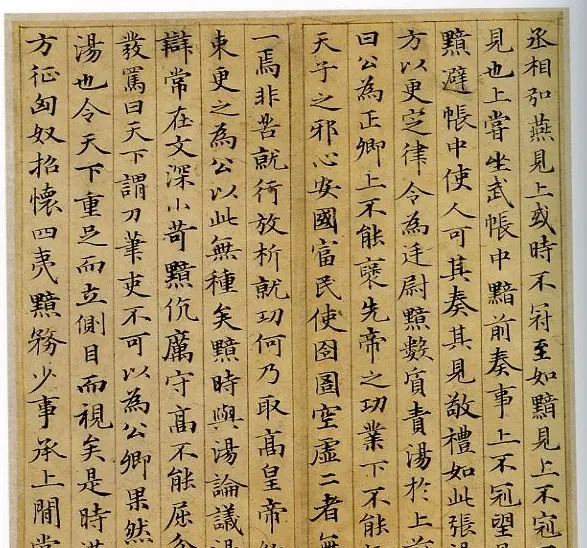 丞相弘燕見上或時不冠至如黯見上不冠
見也上嘗坐武帳中黯前奏事上不冠望
黯避帳中使人可其奏其見敬禮如此張
方以更定律令為廷尉黯數質責湯於上前
曰公為正卿上不能褒先帝之功業下不能
天子之邪心安國富民使囹圄空虛二者無
一焉非苦就行放析就功何乃取高皇帝
束更之為公以此無種矣黯時與湯論議湯
辯常在文深小苛黯伉厲守高不能屈忿
發罵曰天下謂刀筆吏不可以為公卿果然
湯也令天下重足而立側目而視矣是時漢
方征匈奴招懷四夷黯務少事承上閒常